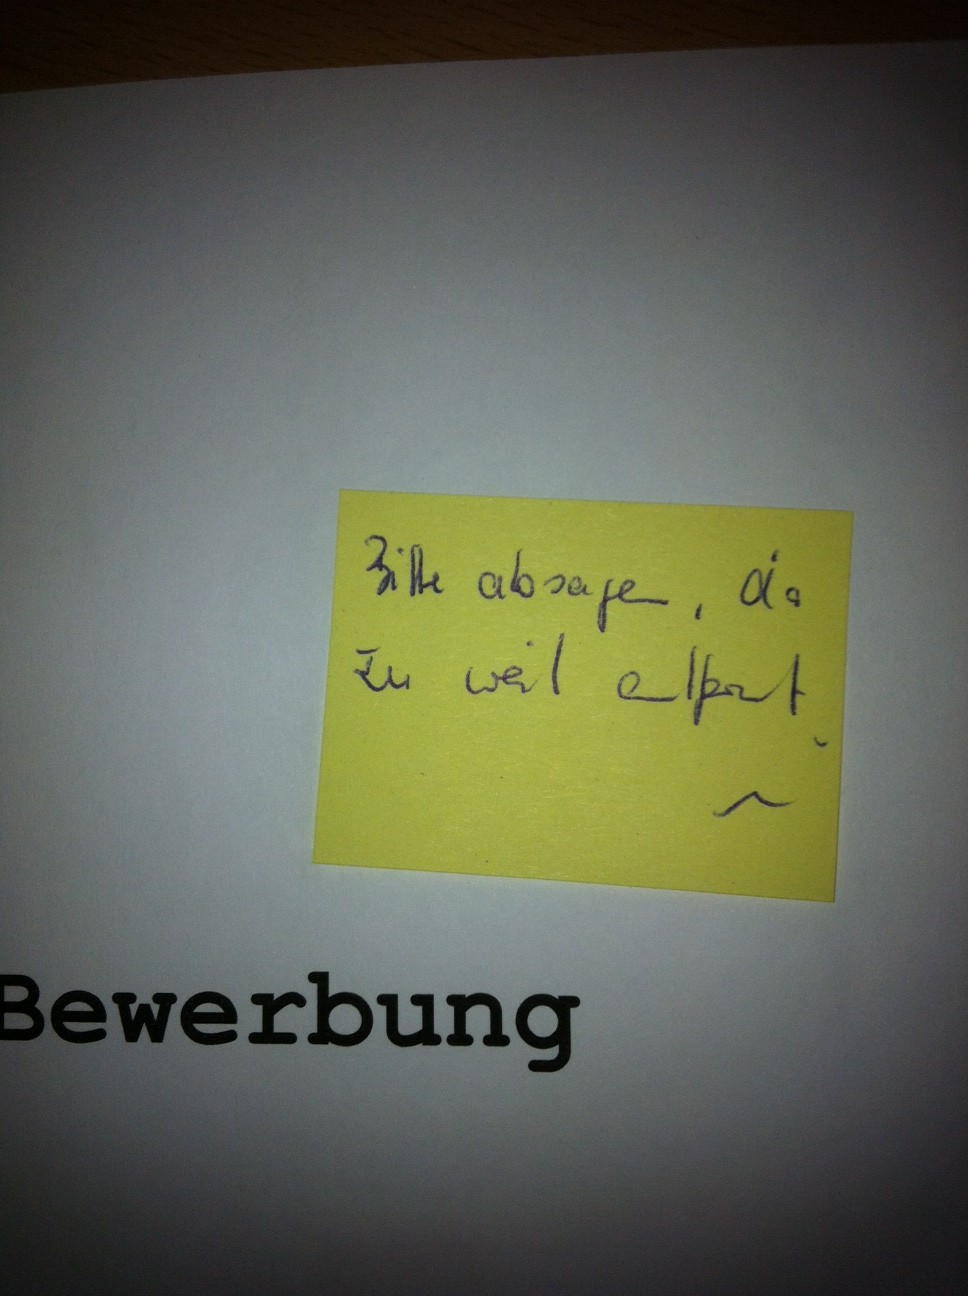 Bitte absagen, da
zu weit entfernt
Bewerbung